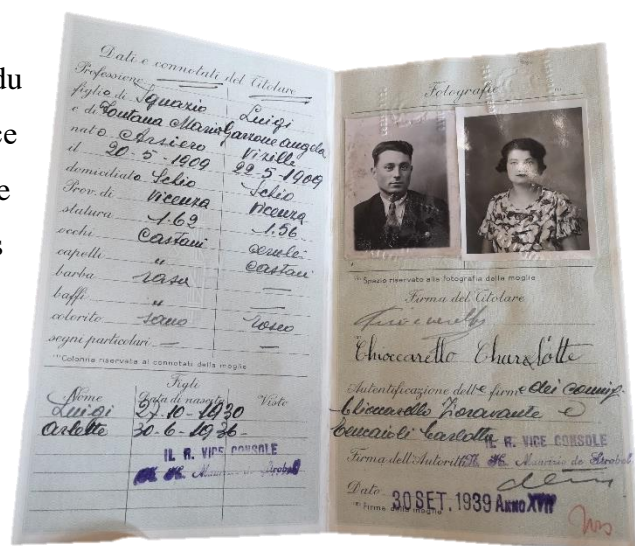 du
ce
e
s
Dati e connotati del Titolare
Professione
figlio di Ignazio Luigi
e di Fontana Maria Garrone Angela
nato Arsiero Vizille
il 20-5-1909 22-5-1909
domiciliato Schio Schio
Prov. di Vicenza Vicenza
statura 1.62 1.56
occhi Castani cerulei
capelli " Castani
barba rasa —
baffi " —
colorito sano roseo
segni particolari — —
(1) Colonna riservata ai connotati della moglie
Figli
Nome Data di nascita Visto
Luigi 27-10-1930
Arlette 30-6-1936
IL R. VICE CONSOLE
Maurizio de Strobel
Fotografie
(1) Spazio riservato alla fotografia della moglie
Firma del Titolare
Chioccarello Charlotte
Autentificazione delle firme dei coniugi
Chioccarello Fioravante e
Bencaioli Carlotta
IL R. VICE CONSOLE
Firma dell'Autorità Maurizio de Strobel
Data 30 SET. 1939 ANNO XVII
(1) Firma della moglie